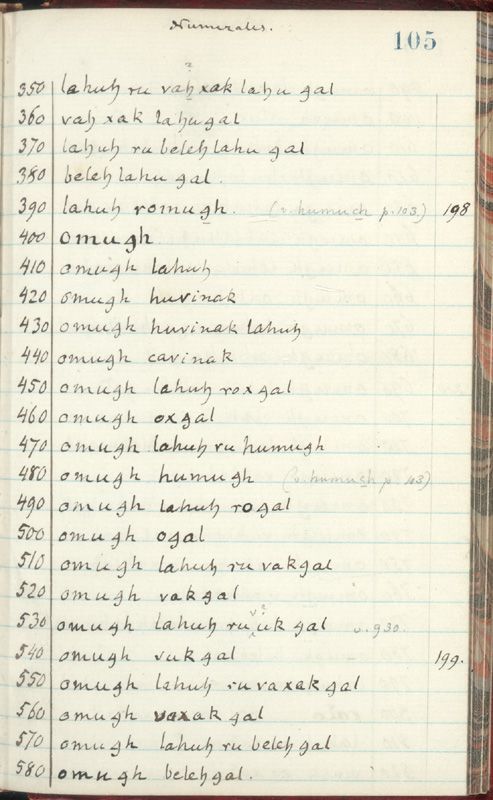 Numerales.
105
350 lahuḫ ru vaḫxak laḫu gal
360 vaḫ xak laḫugal
370 lahuḫ ru belcḫ laḫu gal
380 belcḫ lahu gal.
390 lahuḫ romugh. (v. humuch p. 103) 198
400 omugh
410 omugh lahuḫ
420 omugh huvinak
430 omugh huvinak lahuḫ
440 omugh cavinak
450 omugh lahuḫ roxgal
460 omugh oxgal
470 omugh lahuḫ ru humugh
480 omugh humugh (v. humuch p. 103)
490 omugh lahuḫ rogal
500 omugh ogal
510 omugh lahuḫ ru vakgal
520 omugh vakgal
530 omugh lahuḫ ru uk gal v. 930.
540 omugh vukgal 199.
550 omugh lahuḫ ruvaxak gal
560 omugh vaxak gal
570 omugh lahuḫ ru belcḫ gal
580 omugh belcḫ gal.